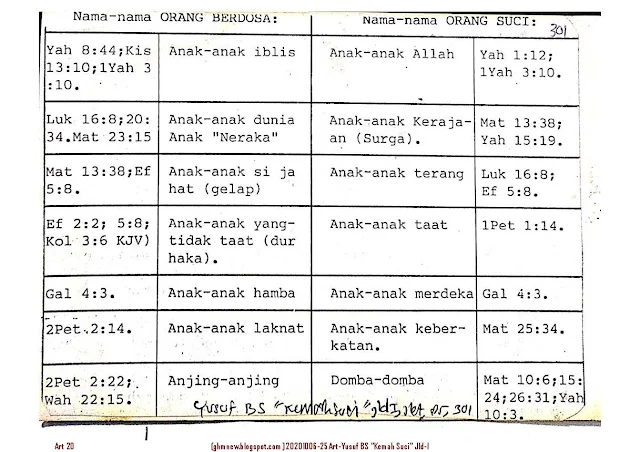 Nama-nama ORANG BERDOSA:
Nama-nama ORANG SUCI:
301
Yah 8:44;Kis
13:10;1Yah 3
:10.
Anak-anak iblis
Anak-anak Allah
Yah 1:12;
1Yah 3:10.
Luk 16:8;20:
34.Mat 23:15
Anak-anak dunia
Anak "Neraka"
Anak-anak Keraja-
an (Surga).
Mat 13:38;
Yah 15:19.
Mat 13:38;Ef
5:8.
Anak-anak si ja
hat (gelap)
Anak-anak terang
Luk 16:8;
Ef 5:8.
Ef 2:2; 5:8;
Kol 3:6 KJV)
Anak-anak yang-
tidak taat (dur
haka).
Anak-anak taat
1Pet 1:14.
Gal 4:3.
Anak-anak hamba
Anak-anak merdeka
Gal 4:3.
2Pet.2:14.
Anak-anak laknat
Anak-anak keber-
katan.
Mat 25:34.
2Pet 2:22;
Wah 22:15.
Anjing-anjing
Domba-domba
Mat 10:6;15:
24;26:31;Yah
10:3.
Yusuf BS "Kemah Suci" Jld I, 301
Art 20
(ghmnew.blogspot.com) 20201006-25 Art-Yusuf BS "Kemah Suci" Jld-I